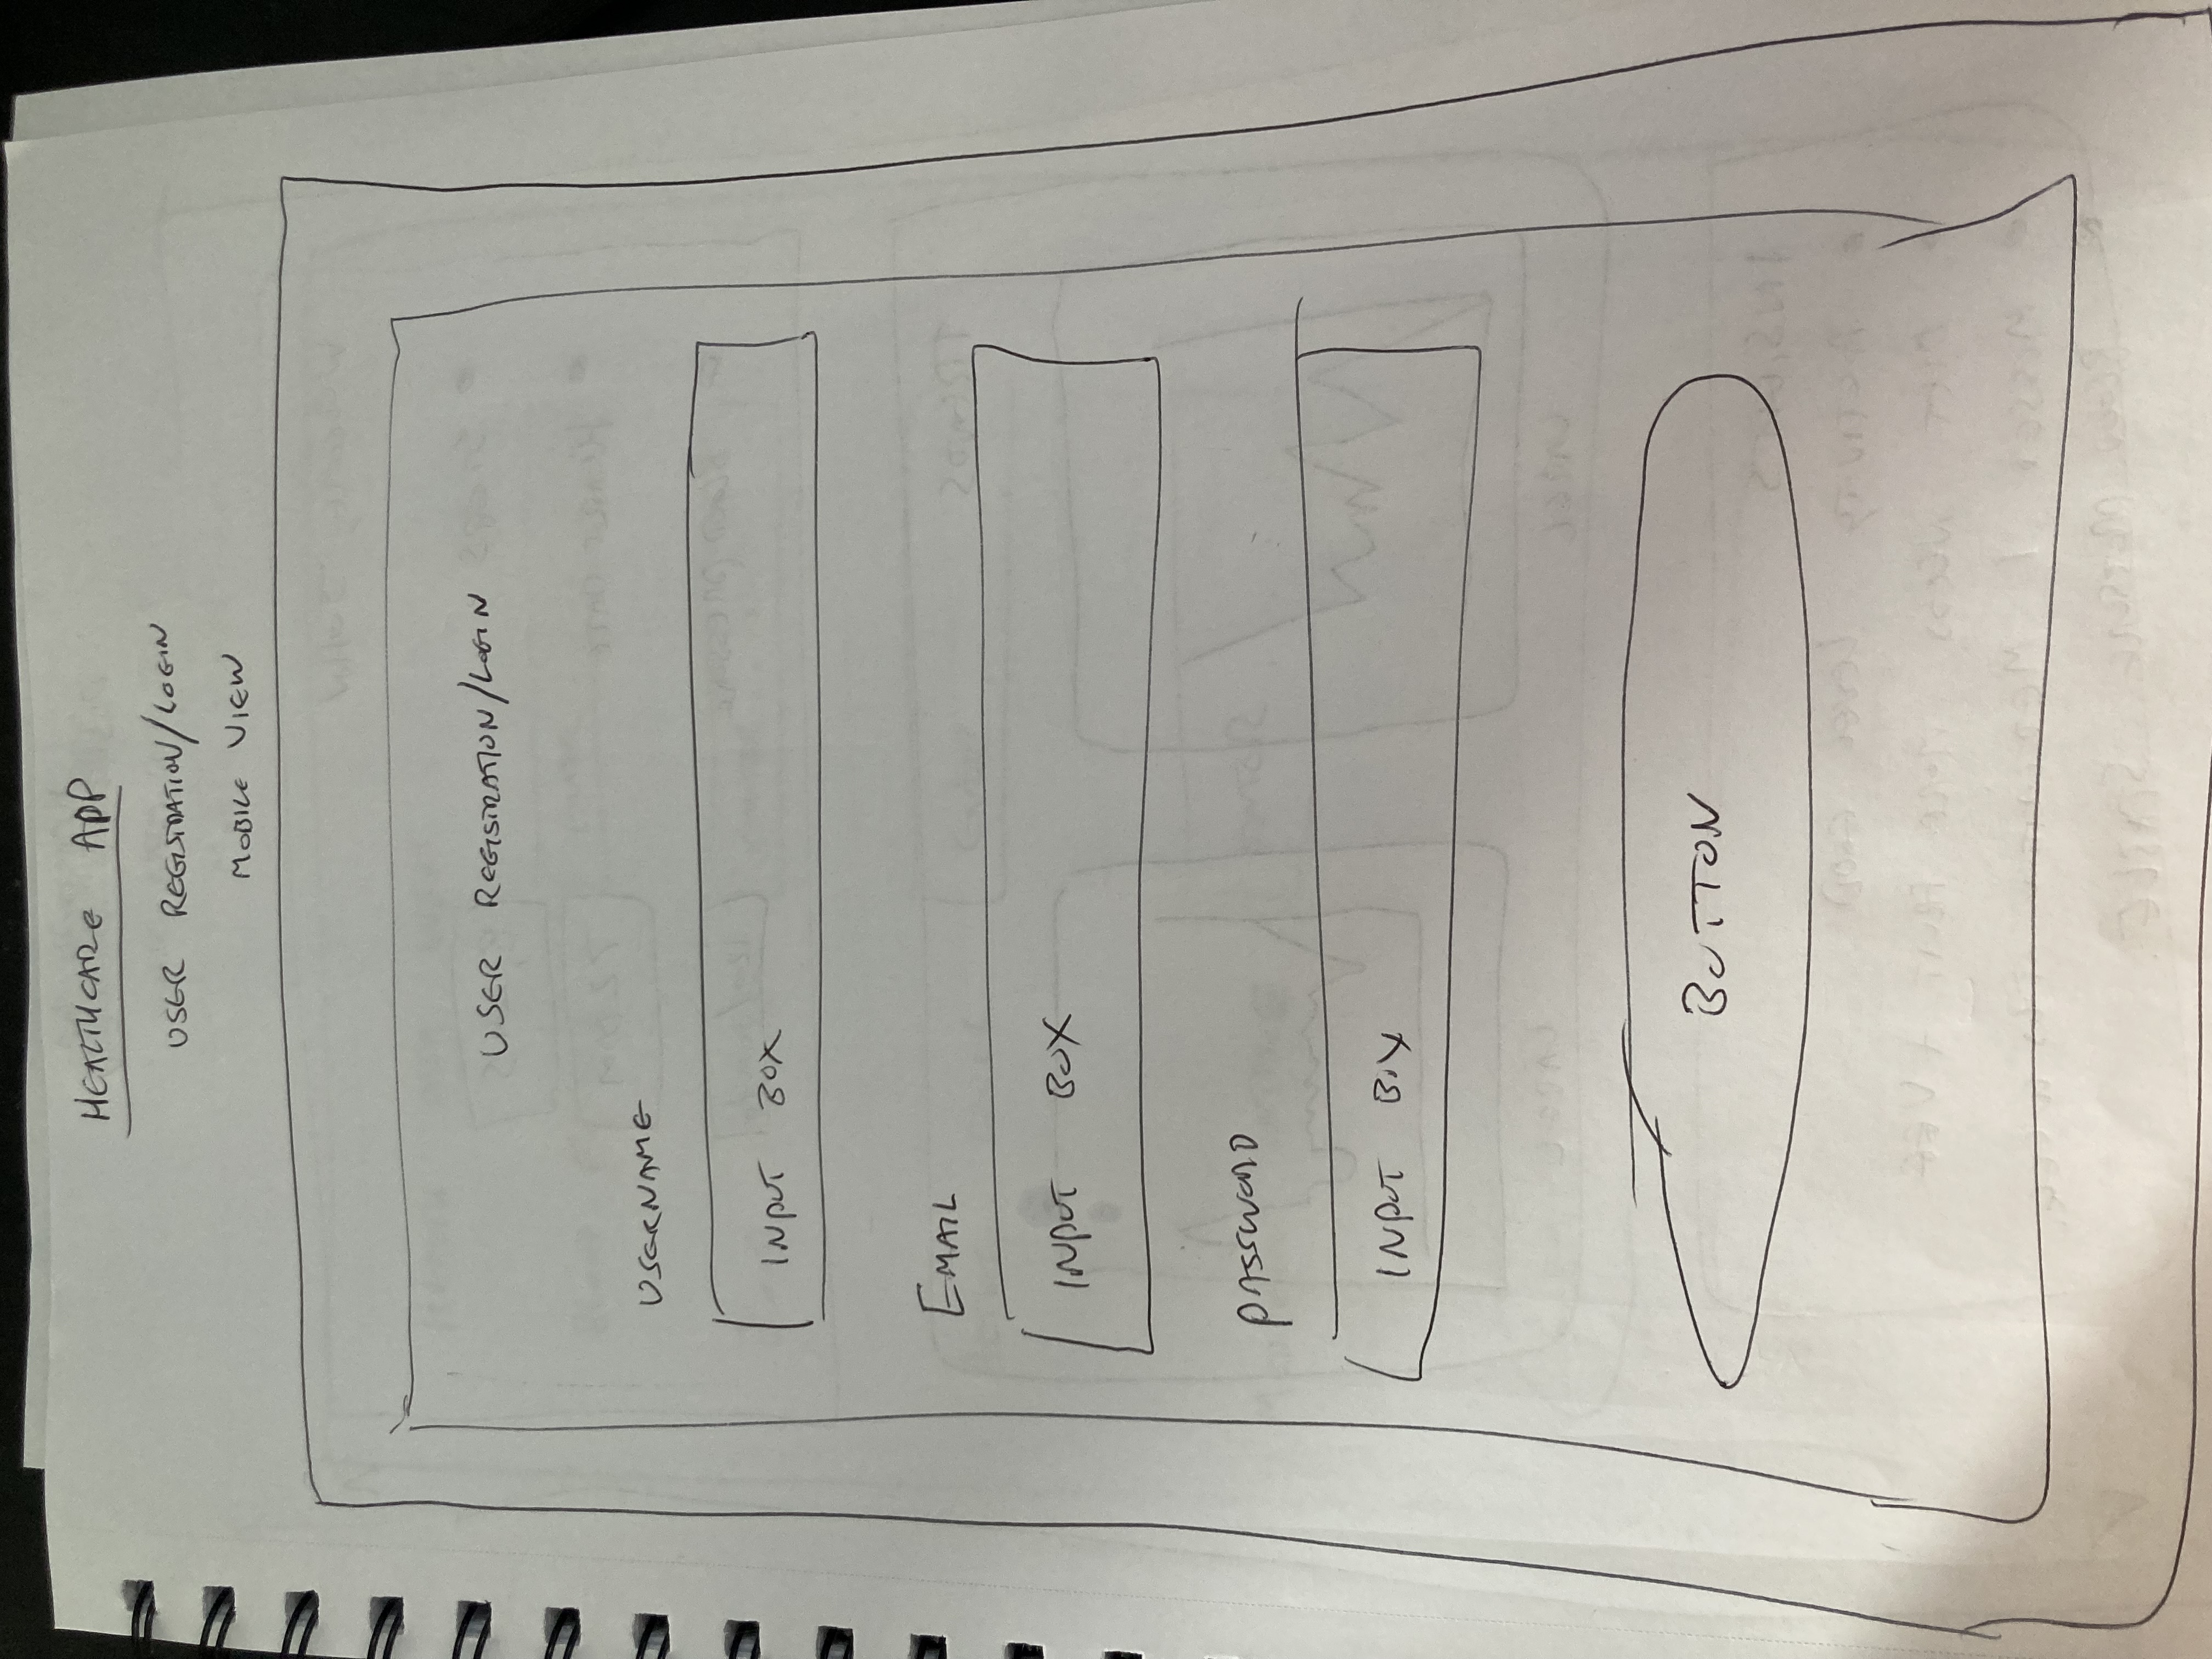 HEALTHCARE APP
USER REGISTRATION/LOGIN
MOBILE VIEW
USER REGISTRATION/LOGIN
USERNAME
INPUT BOX
EMAIL
INPUT BOX
PASSWORD
INPUT BOX
BUTTON